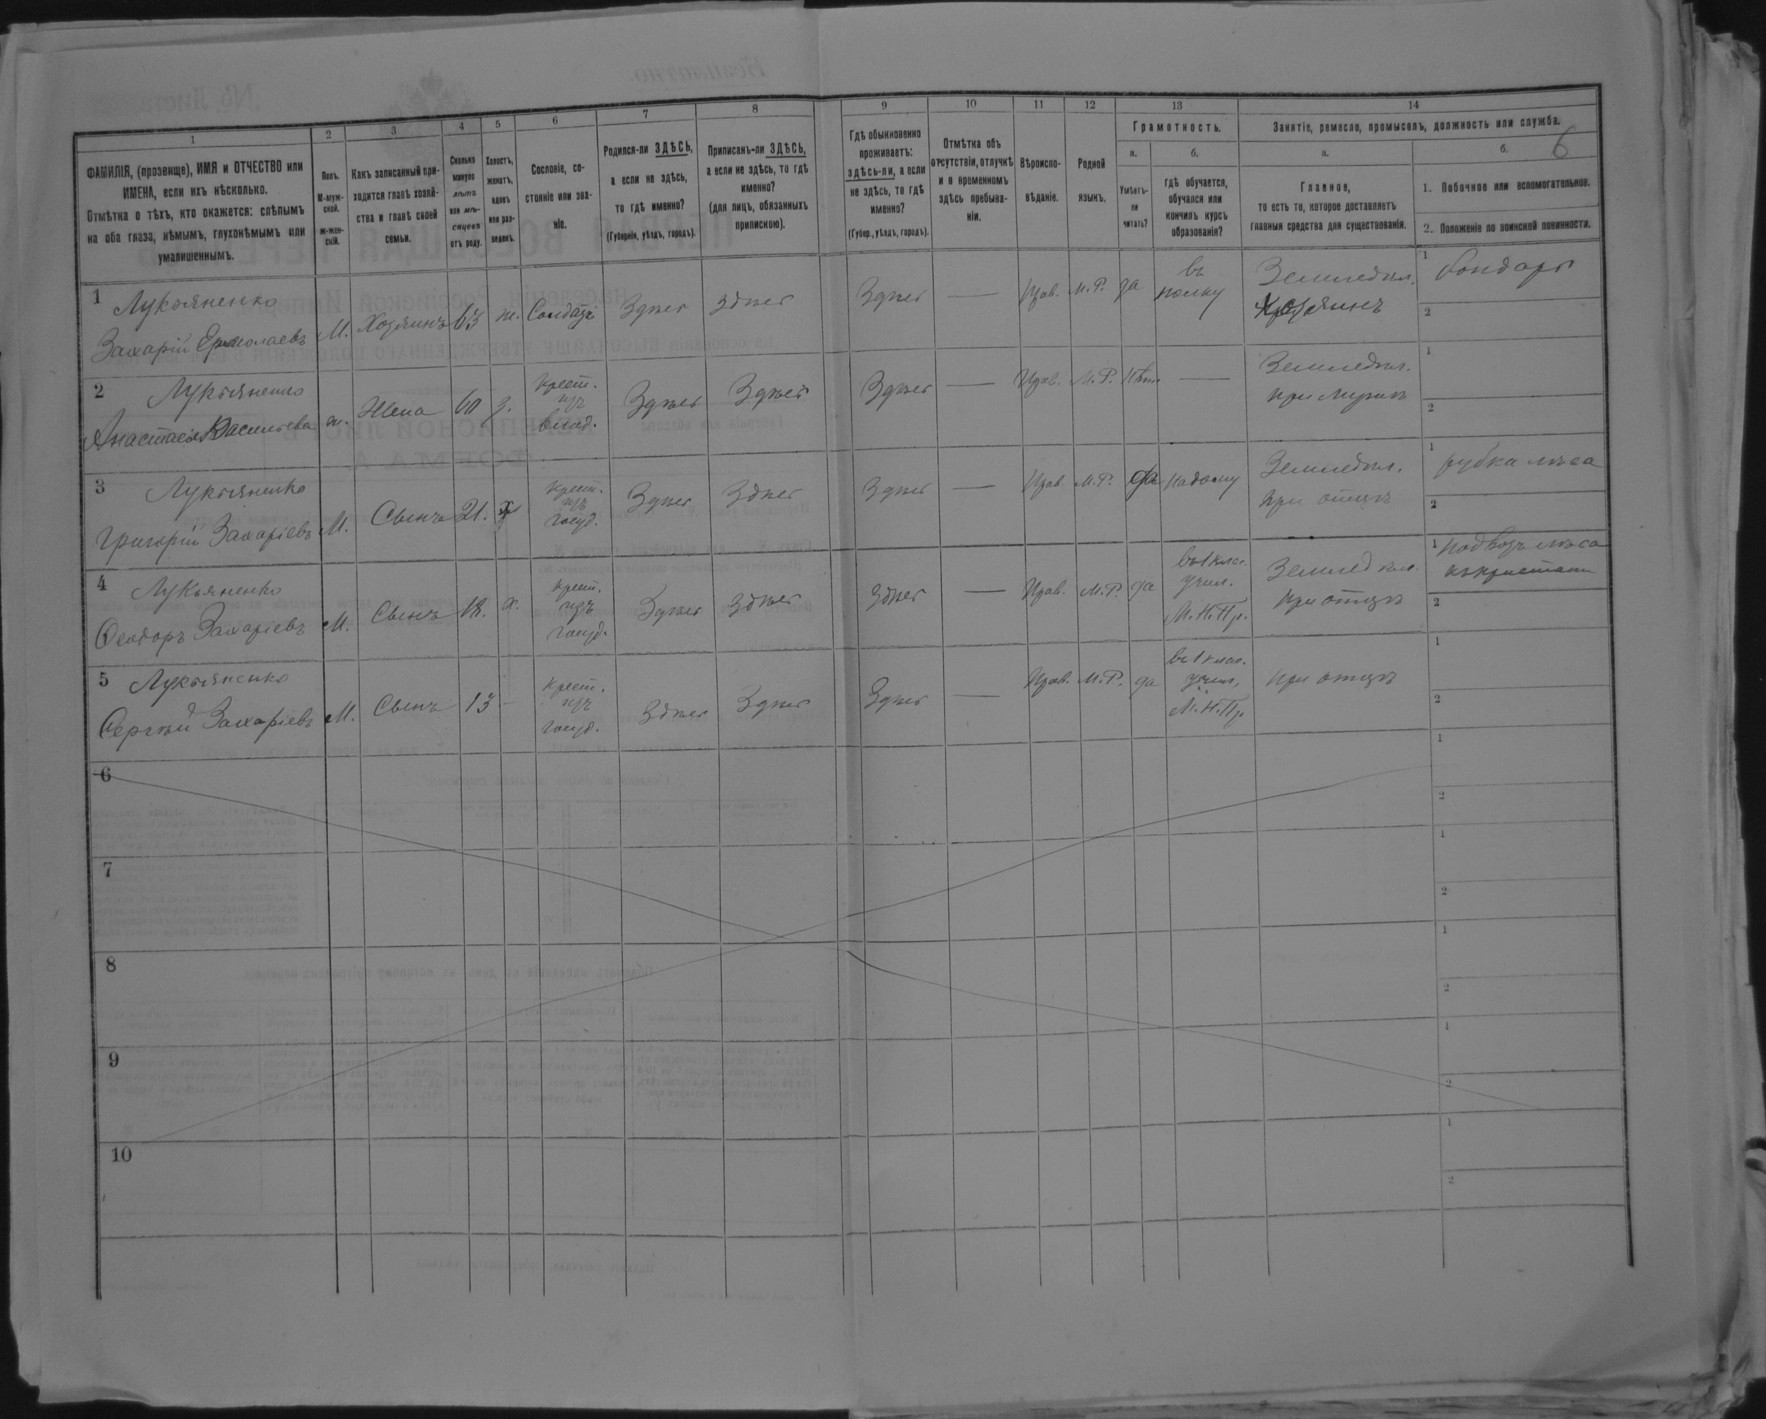 6
1 2 3 4 5 6 7 8 9 10 11 12 13 14
ФАМИЛІЯ, (прозвище), ИМЯ и ОТЧЕСТВО или
ИМЕНА, если ихъ нѣсколько.
Отмѣтка о тѣхъ, кто окажется: слѣпымъ
на оба глаза, нѣмымъ, глухонѣмымъ или
умалишеннымъ.
Полъ.
М-муж-
ской.
ж-жен-
скій.
Какъ записанный при-
ходится главѣ хозяй-
ства и главѣ своей
семьи.
Сколько
минуло
лѣтъ
или мѣ-
сяцевъ
отъ роду.
Холостъ,
женатъ,
вдовъ
или раз-
веденъ.
Сословіе, со-
стояніе или зва-
ніе.
Родился-ли ЗДѢСЬ,
а если не здѣсь,
то гдѣ именно?
(Губернія, уѣздъ, городъ).
Приписанъ-ли ЗДѢСЬ,
а если не здѣсь, то гдѣ
именно?
(для лицъ, обязанныхъ
припискою).
Гдѣ обыкновенно
проживаетъ:
здѣсь-ли, а если
не здѣсь, то гдѣ
именно?
(Губер., уѣздъ, городъ).
Отмѣтка объ
отсутствіи, отлучкѣ
и о временномъ
здѣсь пребыва-
ніи.
Вѣроиспо-
вѣданіе.
Родной
языкъ.
Грамотность.
а.
Умѣетъ-
ли
читать?
б.
гдѣ обучается,
обучался или
кончилъ курсъ
образованія?
Занятіе, ремесло, промыселъ, должность или служба.
а.
Главное,
то есть то, которое доставляетъ
главныя средства для существованія.
б.
1. Побочное или вспомогательное.
2. Положеніе по воинской повинности.
1 Лукьяненко
Захарій Ермолаевъ М. Хозяинъ 63 ж. Солдатъ Здѣсь Здѣсь Здѣсь — Прав. М.Р. да
въ
полку
Земледѣл.
Хозяинъ
1 бондарь
2
2 Лукьяненко
Анастасія Васильева ж. Жена 60 з.
крест.
изъ
Здѣсь Здѣсь Здѣсь — Прав. М.Р. нѣт. —
Земледѣл.
при мужѣ
1
2
3 Лукьяненко
Григорій Захаріевъ М. Сынъ 21. х
крест.
изъ
госуд.
Здѣсь Здѣсь Здѣсь — Прав М.Р. да на дому
Земледѣл.
при отцѣ
1 рубка лѣса
2
4 Лукьяненко
Ѳеодоръ Захаріевъ М. Сынъ 18. х.
крест.
изъ
госуд.
Здѣсь Здѣсь Здѣсь — Прав. М.Р. да
въ 1 клас.
учил.
М.Н.Пр.
Земледѣл.
при отцѣ
1 подвозъ лѣса
къ пристани
2
5 Лукьяненко
Сергѣй Захаріевъ М. Сынъ 13 -
крест.
изъ
госуд.
Здѣсь Здѣсь Здѣсь — Прав. М.Р. да
въ 1 клас.
учил.
М.Н.Пр.
при отцѣ
1
2
6
1
2
7
1
2
8
1
2
9
1
2
10
1
2